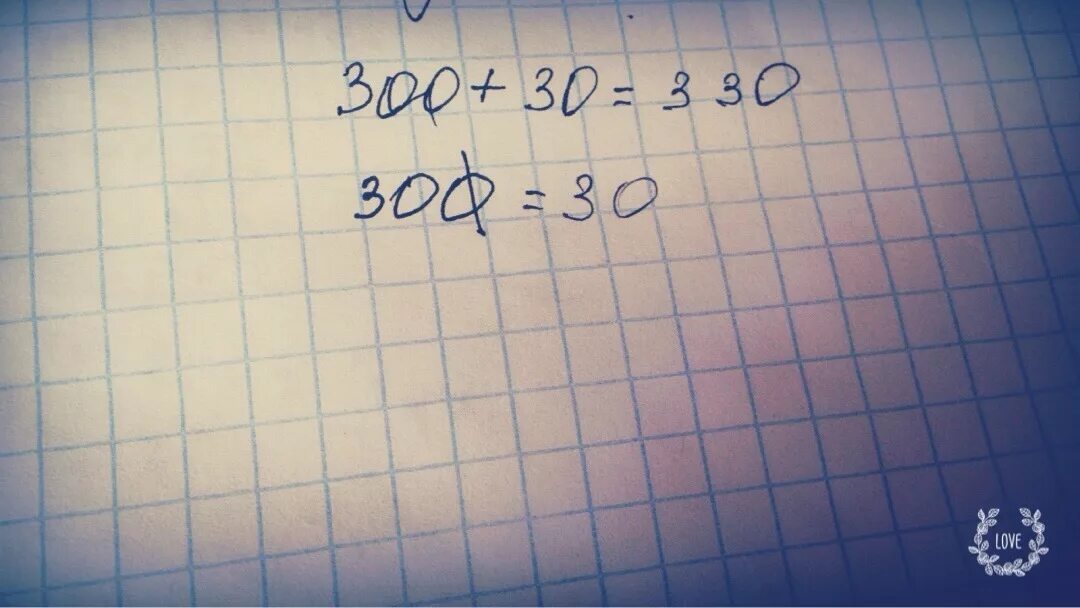 300 + 30 = 330
300 = 30
LOVE